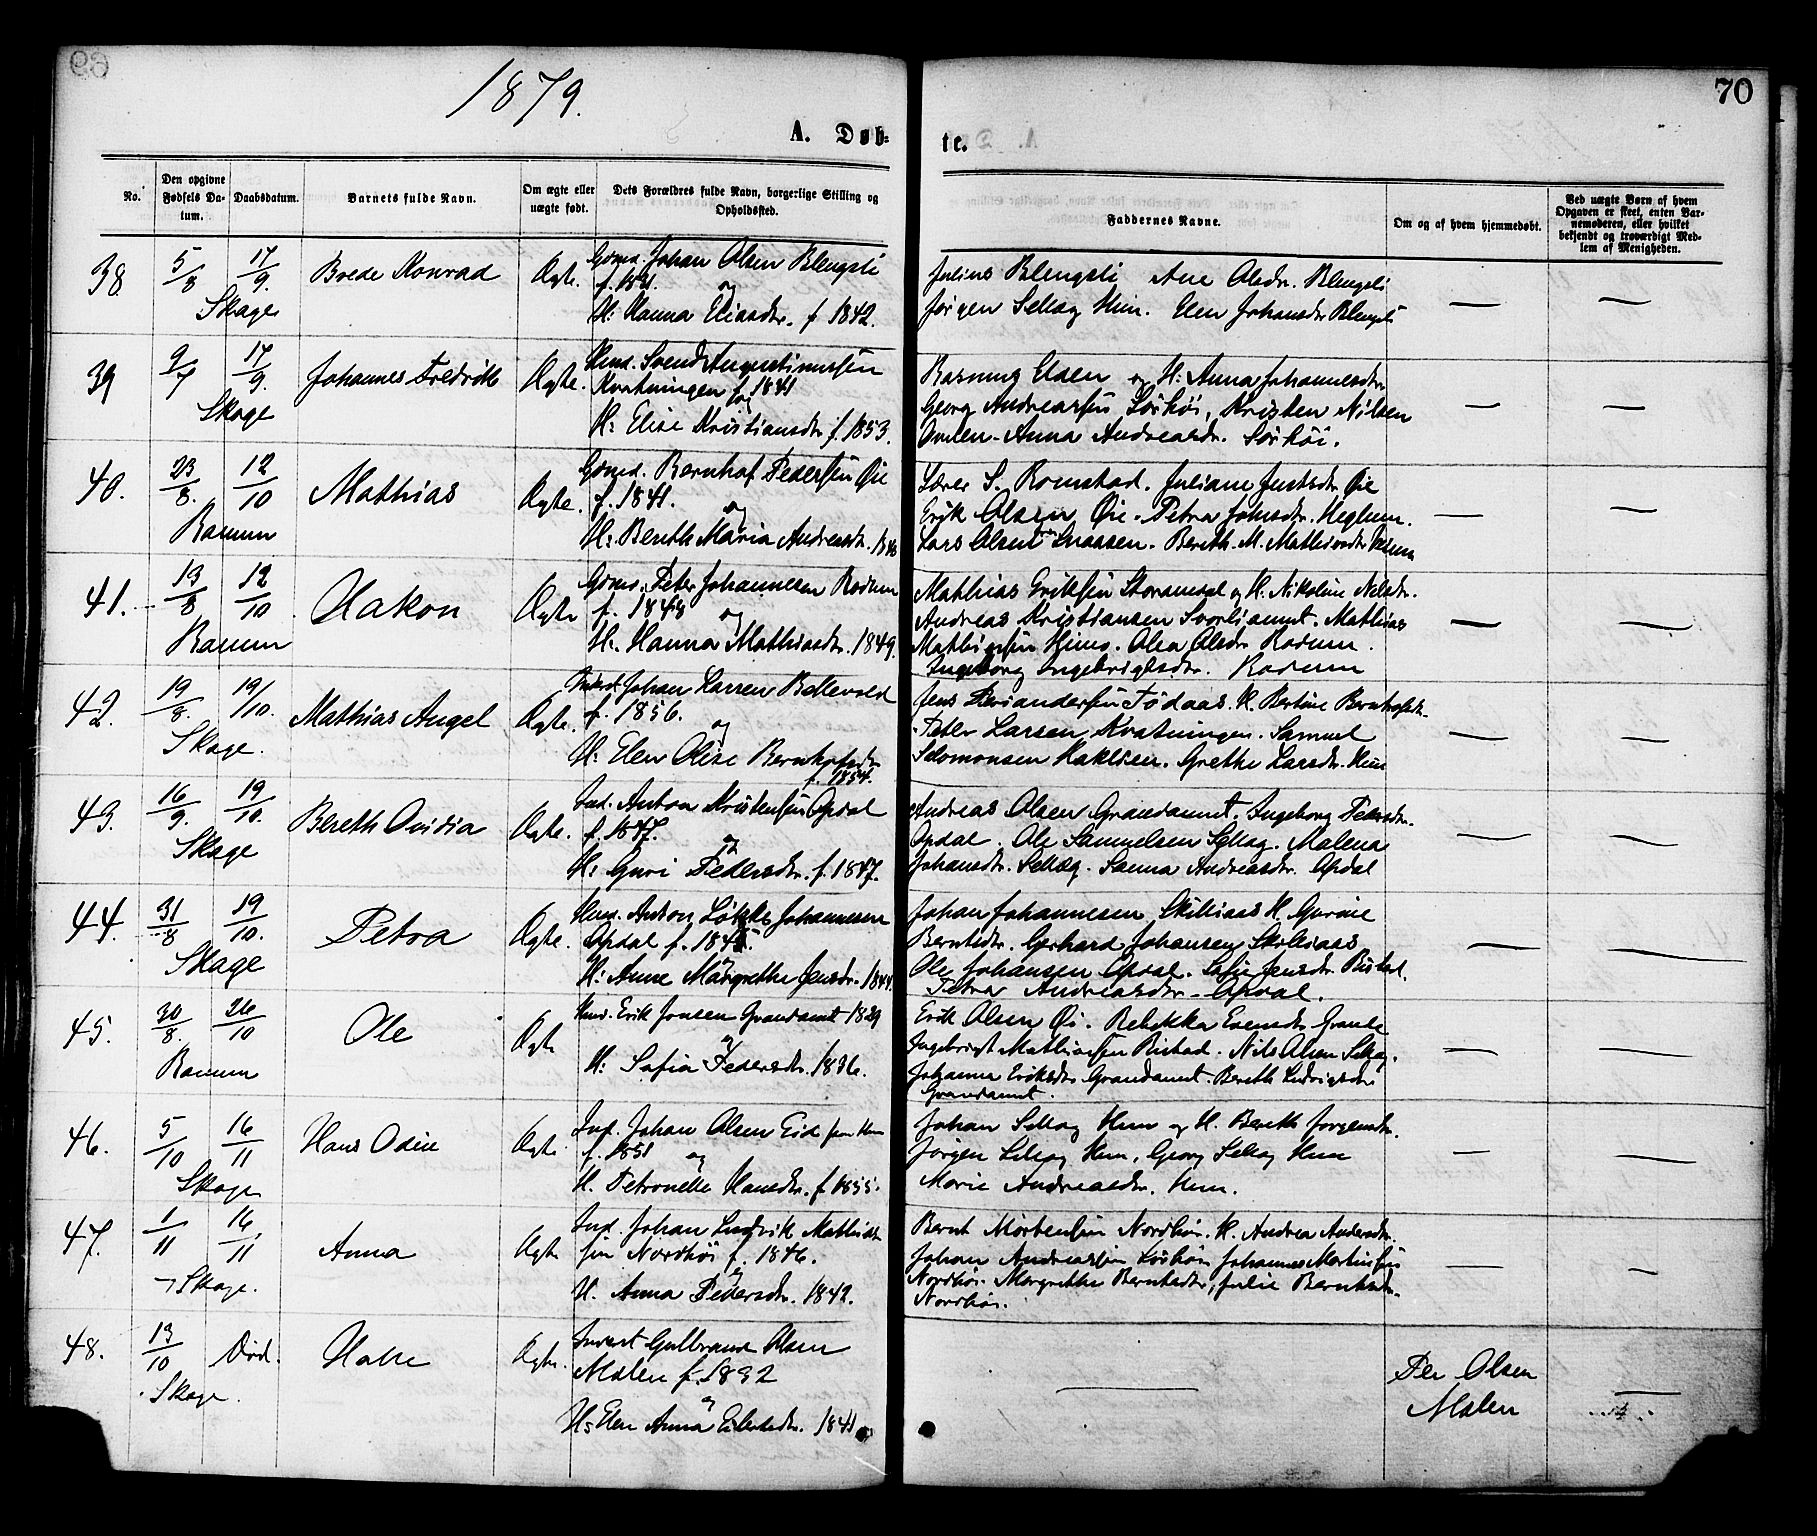 69
70
1879.
A. Døb-
te.
No.
Den opgivne Fødsels Datum.
Daabsdatum.
Barnets fulde Navn.
Om ægte eller uægte født.
Dets Forældres fulde Navn, borgerlige Stilling og Opholdssted.
Faddernes Navne.
Om og af hvem hjemmedøbt.
Ved uægte Børn af hvem Opgaven er skeet, enten Barnemoderen, eller hvilket bekjendt og troværdigt Medlem af Menigheden.
38. 5/8 17/9. Boede Konrad Ægte. Gmd. Johan Olsen Blengsli
Skage
f. 1841. og
H: Hanna Eliasdtr. f 1842.
Julius Blengsli Ane Olsdr. Blengsli
Jørgen Sellæg Hun. Elen Johansdtr Blengsli
39 9/7 17/9. Johannes Fredrik Ægte. Hmd. Svend Augustinussen
Skage
Kvatningen f. 1841 og
H: Elise Kristiansdtr f. 1853.
Elden og H: Anna Johannesdtr
Georg Andreassen Sørhøi, Kristen Nilsen
Anna Andreasdr. Sørhøi.
40. 23/8. 12/10 Mathias Ægte. Gmd. Bernhof Pedersen Øie
Ranem
f. 1841. og
H: Bereth Maria Andreasdr.
Lærer S. Romstad. Juliane Justsdtr Øie
Erik Olsen Øie. Petra Johnsdtr. Meglum.
Lars Olsen Snaasen. Bereth. M. Mathiasdtr
41. 13/8 12/10 Hakon Ægte Gmd. Peter Johannesen Rodum
Ranem
f. 1848 og
H. Hanna Mathiasdtr. 1849.
Mathias Eriksen Storamdal og H. Nikoline Nilsdr.
Andreas Kristiansen Svorliamt. Mathias
Mathiassen Himo. Olea Olsdr Rodum.
Ingeborg Ingebrigtsdr. Rodum
42. 19/8. 19/10. Mathias Angel Ægte. Inderst Johan Larsen Bellevold
Skage.
f. 1856. og
H: Elen Olise Bernhofsdtr
f. 1854.
Jens Fødaas. H. Bertine Bernhofsdr.
Peter Larsen Kvatningen. Samuel
Salomonsen Haklien. Grethe Larsdr. Hun
43. 16/9. 19/10. Bereth Ovidia Ægte. Ind. Anton Kristensen Opdal
Skage
f. 1847. og
H: Guri Pedersdtr. f. 1847.
Andreas Olsen Grandamt. Ingeborg Pedersdtr.
Opdal. Ole Samuelsen Sellæg. Malena
Johansdtr. Sellæg. Sanna Andreasdr. Opdal
44. 31/8 19/10. Petra Ægte. Hmd. Anton Løkke Johannesen
Skage
Opdal f. 1845. og
H: Anne Margrethe Jensdr. 1844.
Johan Johannesen Skilliaas H. Gurine
Berntsdr. Gerhard Johansen Skilliaas
Ole Johansen Opdal. Sofie Jensdr. Ristad.
Petra Andreasdr. Opdal.
45. 30/8. 26/10 Ole Ægte Hmd. Erik Jonsen Grandamt 1829
Ranem
og
H: Sofia Pedersdtr. 1836.
Erik Olsen Øi. Rebekka Evensdtr Grande
Ingebrigt Mathiassen Ristad. Nils Olsen Sellæg.
Johanna Eriksdtr Grandamt. Bereth Ludvigsdtr
Grandamt.
46. 5/10 16/11 Hans Odin Ægte Ind. Johan Olsen Eid fra Hun
Skage
f. 1851 og
H. Petronelle Hansdtr. f. 1855.
Johan Sellæg Hun og H. Bereth Jørgensdtr.
Jørgen Sellæg Hun, Georg Sellæg Hun
Marie Andreasdtr. Hun.
47. 1/11 16/11 Anna Ægte Ind. Johan Ludvik Mathias-
Skage.
sen Nordhøi f. 1846. og
H. Anna Pedersdtr. 1842.
Bernt Mortensen Nordhøi. H. Andrea Andersdtr.
Johan Andreassen Sørhøi. Johannes Martinsen
Nordhøi. Margrethe Berntsdtr, Julie Berntsdr.
Nordhøi.
48. 13/10 Død. Hakon Ægte. Inderst Gulbrand Olsen
Skage.
Moen f. 1832 og
H: Elen Anna Eilertsdtr. 1841
Per Olsen
Moen